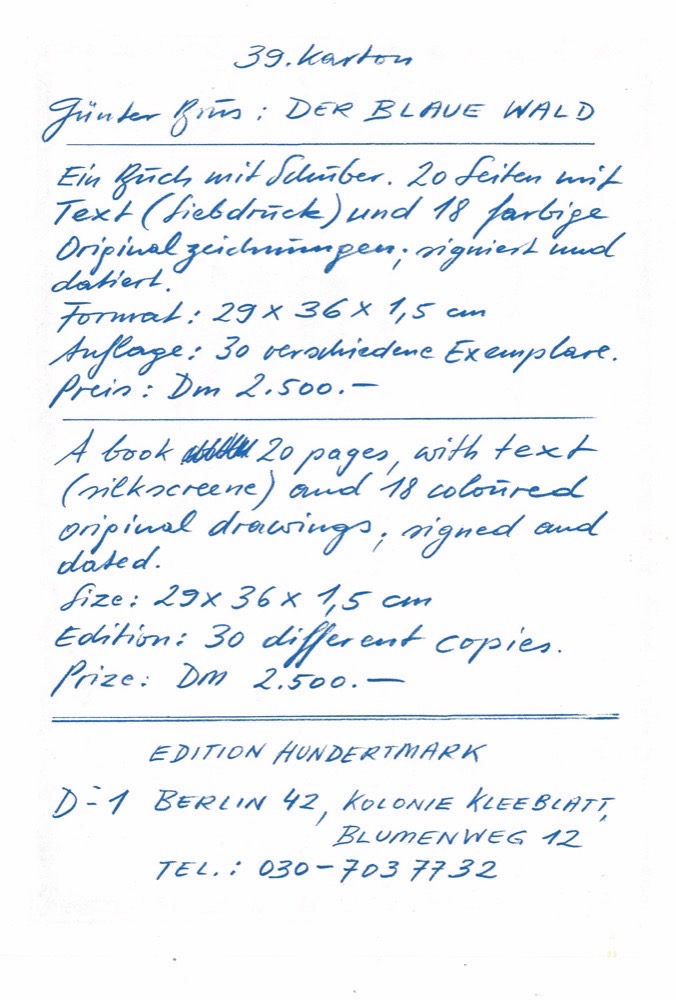 39. Karton
Günter Brus: DER BLAUE WALD
Ein Buch mit Schuber. 20 Seiten mit
Text (Siebdruck) und 18 farbige
Originalzeichnungen; signiert und
datiert.
Format: 29 x 36 x 1,5 cm
Auflage: 30 verschiedene Exemplare.
Preis: Dm 2.500.—
A book 20 pages, with text
(silkscreene) and 18 coloured
original drawings; signed and
dated.
Size: 29 x 36 x 1,5 cm
Edition: 30 different copies.
Prize: Dm 2.500.—
EDITION HUNDERTMARK
D-1 BERLIN 42, KOLONIE KLEEBLATT,
BLUMENWEG 12
TEL.: 030-703 77 32